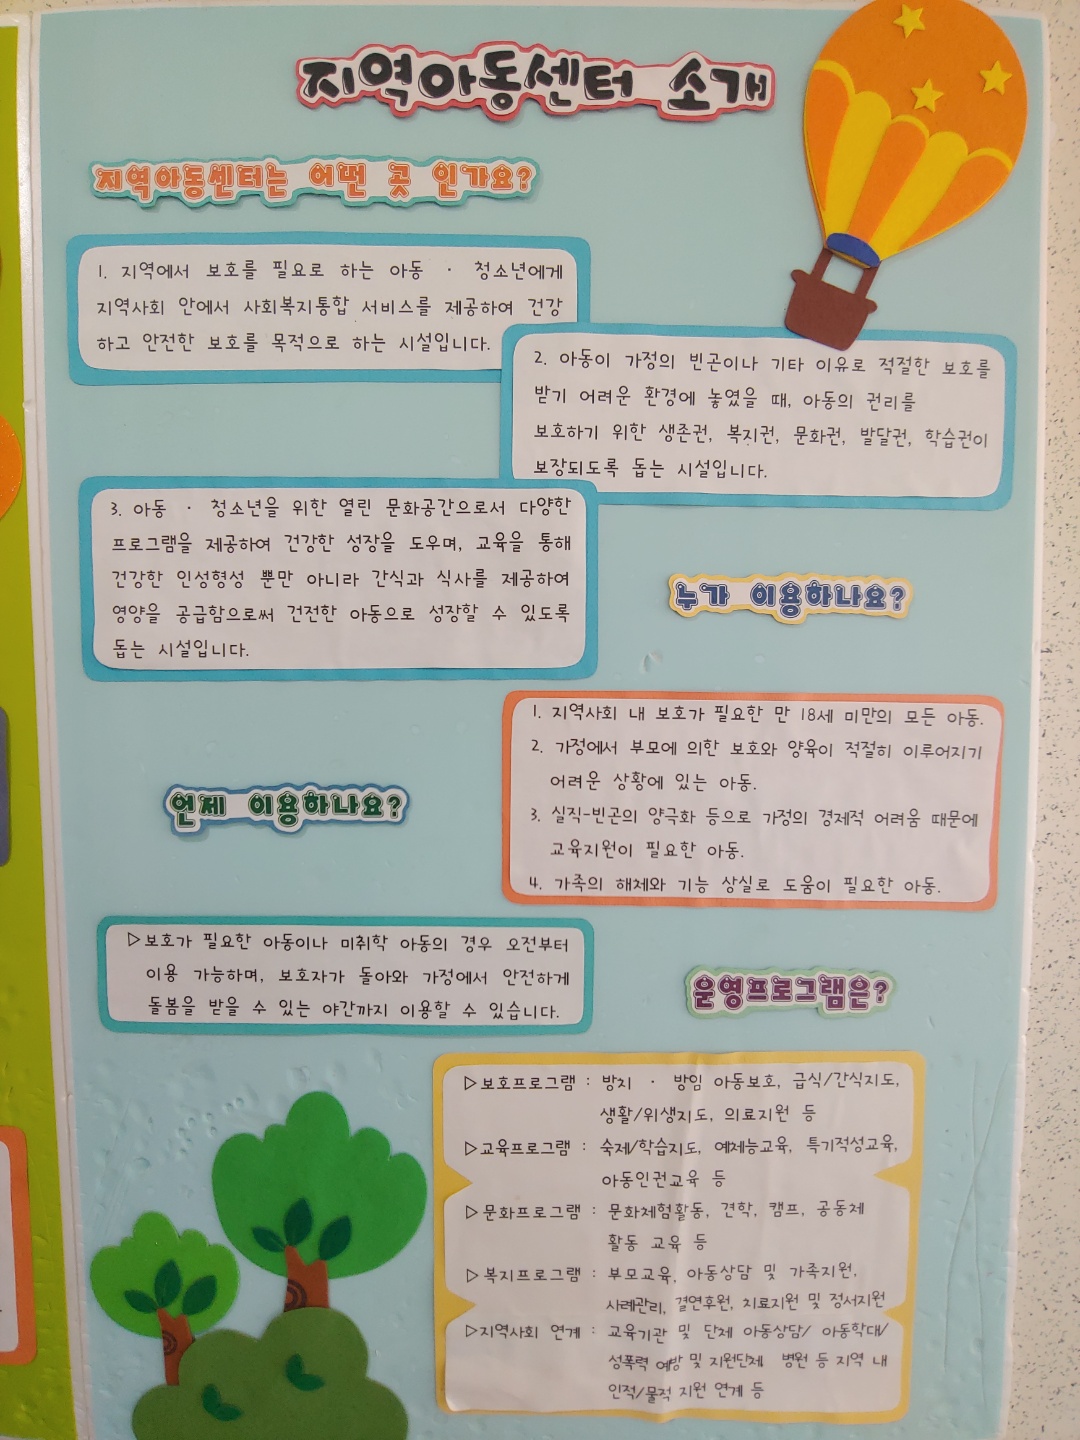 지역아동센터 소개
지역아동센터는 어떤 곳 인가요?
1. 지역에서 보호를 필요로 하는 아동 · 청소년에게
지역사회 안에서 사회복지통합 서비스를 제공하여 건강
하고 안전한 보호를 목적으로 하는 시설입니다.
2. 아동이 가정의 빈곤이나 기타 이유로 적절한 보호를
받기 어려운 환경에 놓였을 때, 아동의 권리를
보호하기 위한 생존권, 복지권, 문화권, 발달권, 학습권이
보장되도록 돕는 시설입니다.
3. 아동 · 청소년을 위한 열린 문화공간으로서 다양한
프로그램을 제공하여 건강한 성장을 도우며, 교육을 통해
건강한 인성형성 뿐만 아니라 간식과 식사를 제공하여
영양을 공급함으로써 건전한 아동으로 성장할 수 있도록
돕는 시설입니다.
누가 이용하나요?
1. 지역사회 내 보호가 필요한 만 18세 미만의 모든 아동.
2. 가정에서 부모에 의한 보호와 양육이 적절히 이루어지기
어려운 상황에 있는 아동.
3. 실직-빈곤의 양극화 등으로 가정의 경제적 어려움 때문에
교육지원이 필요한 아동.
4. 가족의 해체와 기능 상실로 도움이 필요한 아동.
언제 이용하나요?
▷보호가 필요한 아동이나 미취학 아동의 경우 오전부터
이용 가능하며, 보호자가 돌아와 가정에서 안전하게
돌봄을 받을 수 있는 야간까지 이용할 수 있습니다.
운영프로그램은?
▷보호프로그램 : 방치 · 방임 아동보호, 급식/간식지도,
생활/위생지도, 의료지원 등
▷교육프로그램 : 숙제/학습지도, 예체능교육, 특기적성교육,
아동인권교육 등
▷문화프로그램 : 문화체험활동, 견학, 캠프, 공동체
활동 교육 등
▷복지프로그램 : 부모교육, 아동상담 및 가족지원,
사례관리, 결연후원, 치료지원 및 정서지원
▷지역사회 연계 : 교육기관 및 단체 아동상담/ 아동학대/
성폭력 예방 및 지원단체 병원 등 지역 내
인적/물적 지원 연계 등